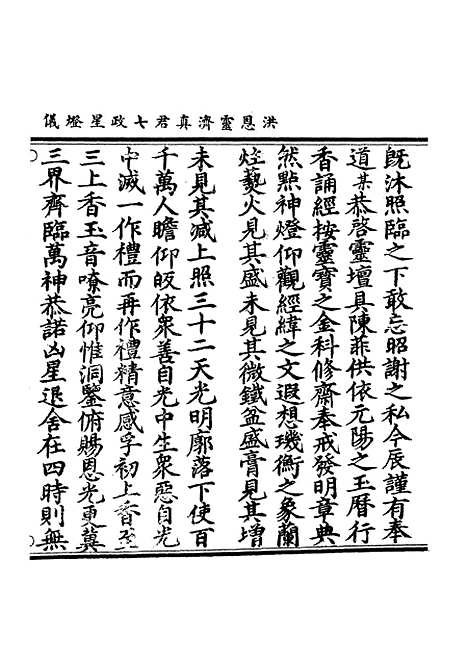 洪恩靈濟真君七政星燈儀
既沐照臨之下敢忘昭謝之私今辰謹有奉
道某恭啓靈壇具陳菲供依元陽之玉曆行
香誦經按靈寶之金科修齋奉戒發明章典
然點神燈仰觀經緯之文遐想璣衡之象蘭
炷爇火見其盛未見其微鐵盆盛膏見其增
未見其減上照三十二天光明廓落下使百
千萬人瞻仰皈依衆善自光中生衆惡自光
中滅一作禮而再作禮精意感孚初上香至
三上香玉音嘹亮仰惟洞鑒俯賜恩光更冀
三界齊臨萬神恭諾凶星退舍在四時則無